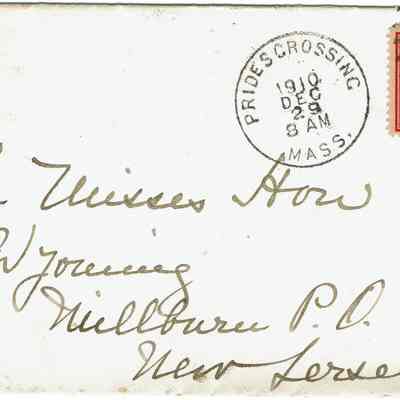 PRIDES CROSSING
1910
DEC
29
8 AM
MASS.
Misses How
Wyoming
Millburn P. O.
New Jerse